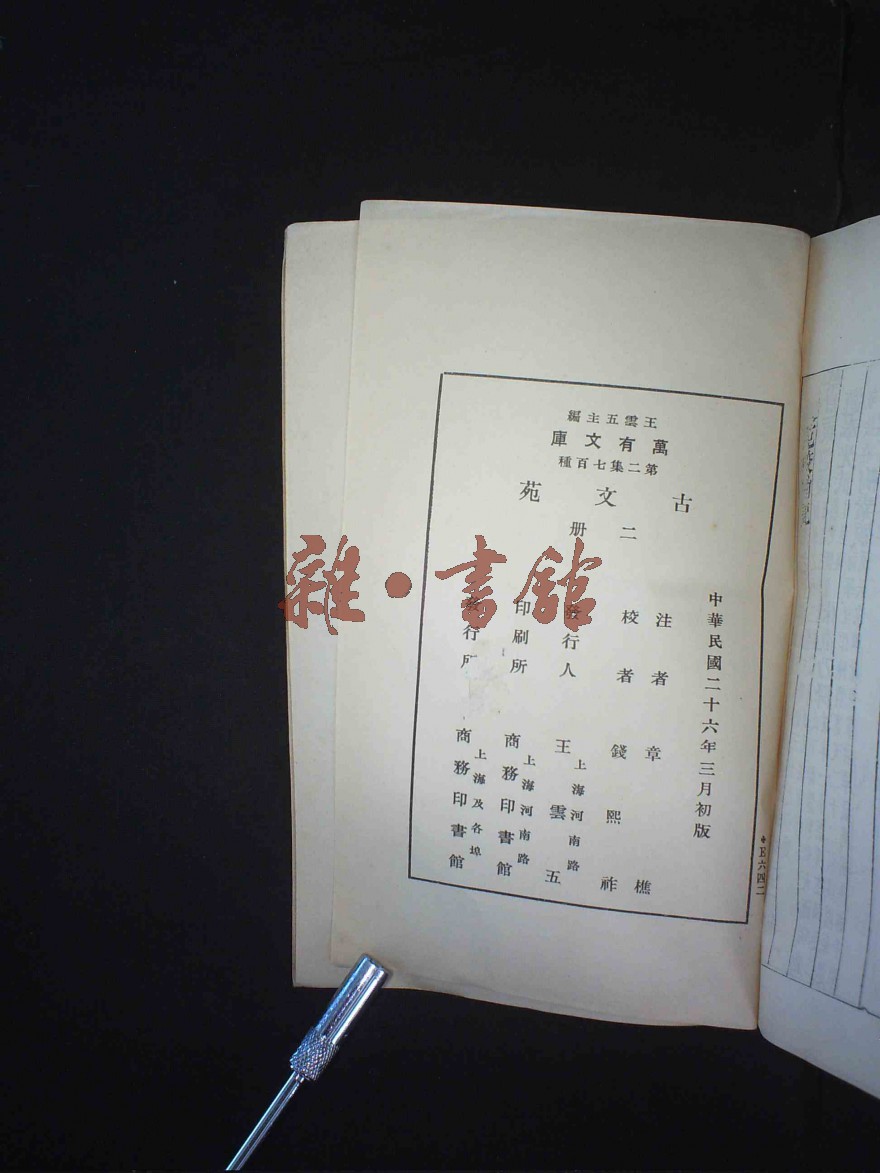 王雲五主編
萬有文庫
第二集七百種
古文苑
二册
中華民國二十六年三月初版
注者 章樵
校者 錢熙祚
發行人 王雲五
上海河南路
印刷所 商務印書館
上海河南路
發行所 商務印書館
上海及各埠
雜·書館